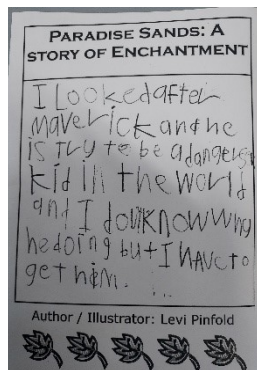 PARADISE SANDS: A
STORY OF ENCHANTMENT
I Looked after
maverick and he
is try to be a dangers
kid in the world
and I don know wny
he doing but I have to
get him.
Author / Illustrator: Levi Pinfold